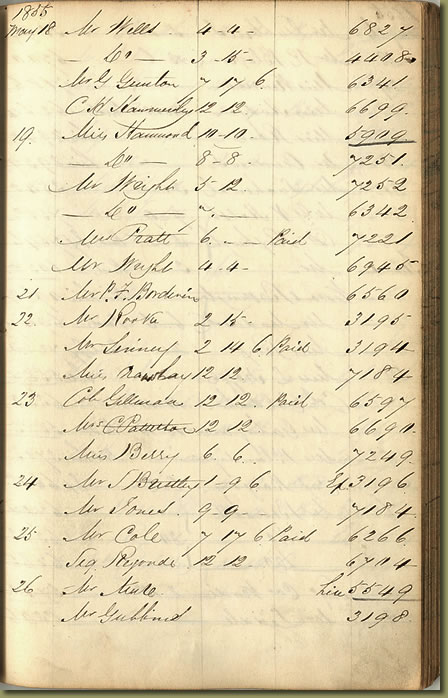 1855
May 18 Mr Wells 4 - 4 - 6827
— Do — 3 15 - 4408
Mr G Gunton 7 17 6 6341
C H 12 12 6699
19. Miss Hammond 10 - 10 - 5909
— Do — 8 - 8 - 7251
Mr Wright 5 12 7252
— Do — 7 - — 6342
Pratt 6 - - Paid 7221
Mr Wright 4 - 4 - 6945
21 6560
22 Mr Rooke 2 15 - 3195
Mr 2 14 6 Paid 3194
Miss 12 12 7184
23 Col Gillman 12 12 . Paid 6597
Mrs 12 12 6690
Miss Berry 6 . 6 . . 7249
24 Mr 1 - 9 6 3196
Mr Jones 9 - 9 - - 7184
25 Mr Cole 7 17 6 Paid 6266
12 12 6704
26 Mr 5549
Mr Gubbins 3198